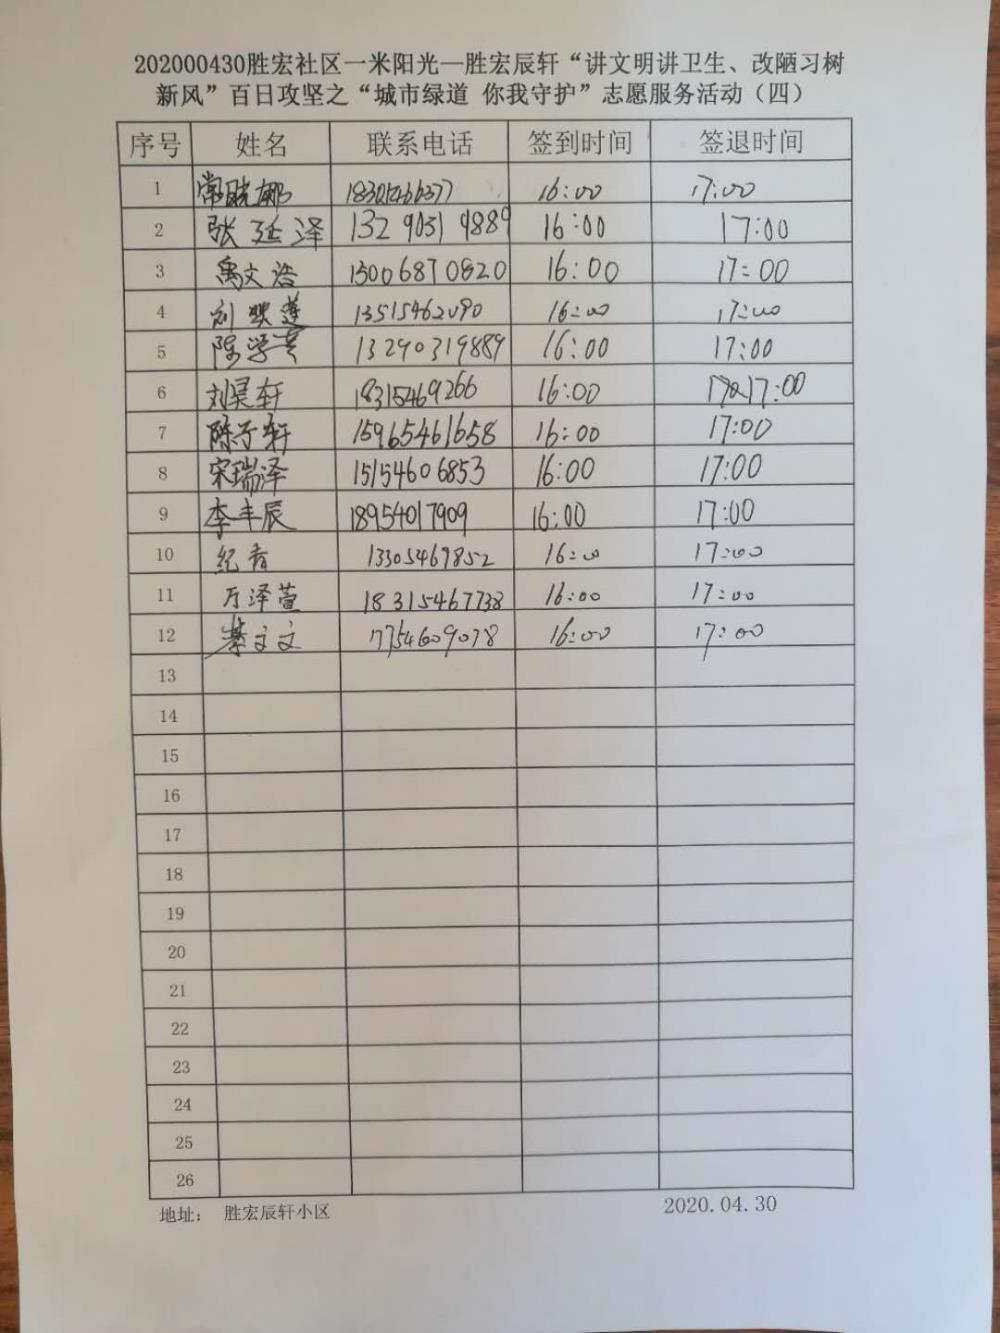 202000430胜宏社区一米阳光—胜宏辰轩“讲文明讲卫生、改陋习树
新风”百日攻坚之“城市绿道 你我守护”志愿服务活动（四）
序号 姓名 联系电话 签到时间 签退时间
1 16:00 17:00
2 张延泽 132 9031 9889 16:00 17:00
3 禹文浩 15006870820 16:00 17:00
4 刘 13515462090 16:00 17:00
5 陈学英 13290319889 16:00 17:00
6 刘昊轩 18315469266 16:00 17:00
7 陈子轩 15965461658 16:00 17:00
8 宋瑞泽 15154606853 16:00 17:00
9 李丰辰 18954017909 16:00 17:00
10 纪青 13305469852 16:00 17:00
11 万泽萱 18315467738 16:00 17:00
12 文文 17754609078 16:00 17:00
13
14
15
16
17
18
19
20
21
22
23
24
25
26
地址： 胜宏辰轩小区 2020.04.30